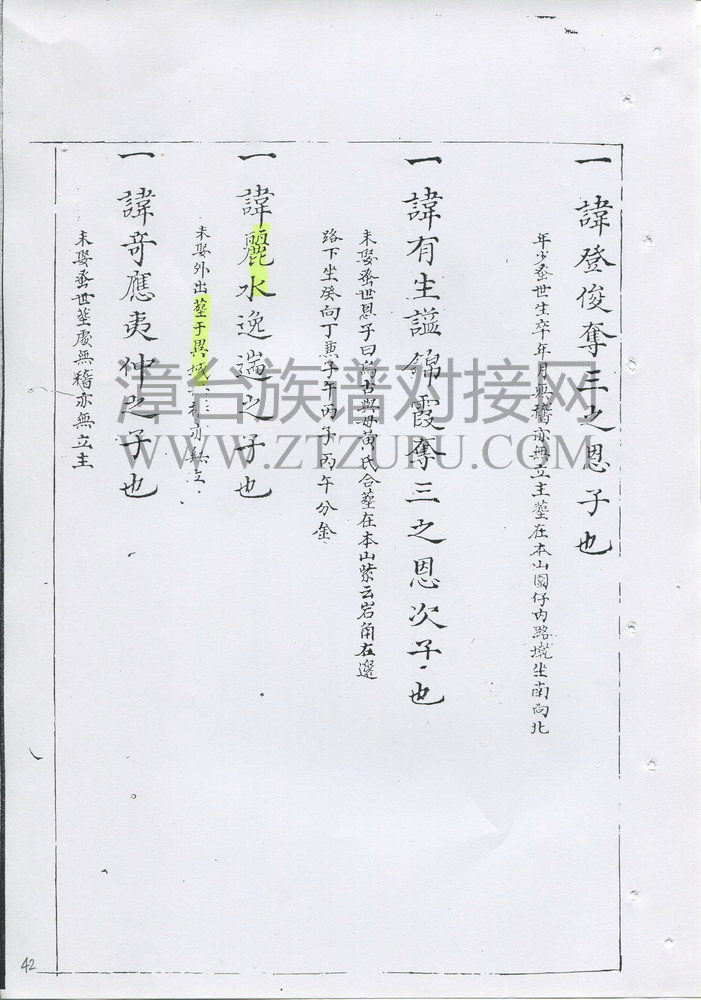 一諱登俊奪三之恩子也
年少蚤世生卒年月無稽亦無立主塟在本山園仔内路墘坐南向北
一諱有生謚錦霞奪三之恩次子也
未娶蚤世恩子曰尚古與母黄氏合塟在本山紫云岩角在邊
路下坐癸向丁兼子午丙子丙午分金
一諱麗水逸遄之子也
未娶外出塟于異域
一諱奇應夷仲之子也
未娶蚤世塟處無稽亦無立主
漳台族谱对接网
WWW.ZTZUPU.COM
42